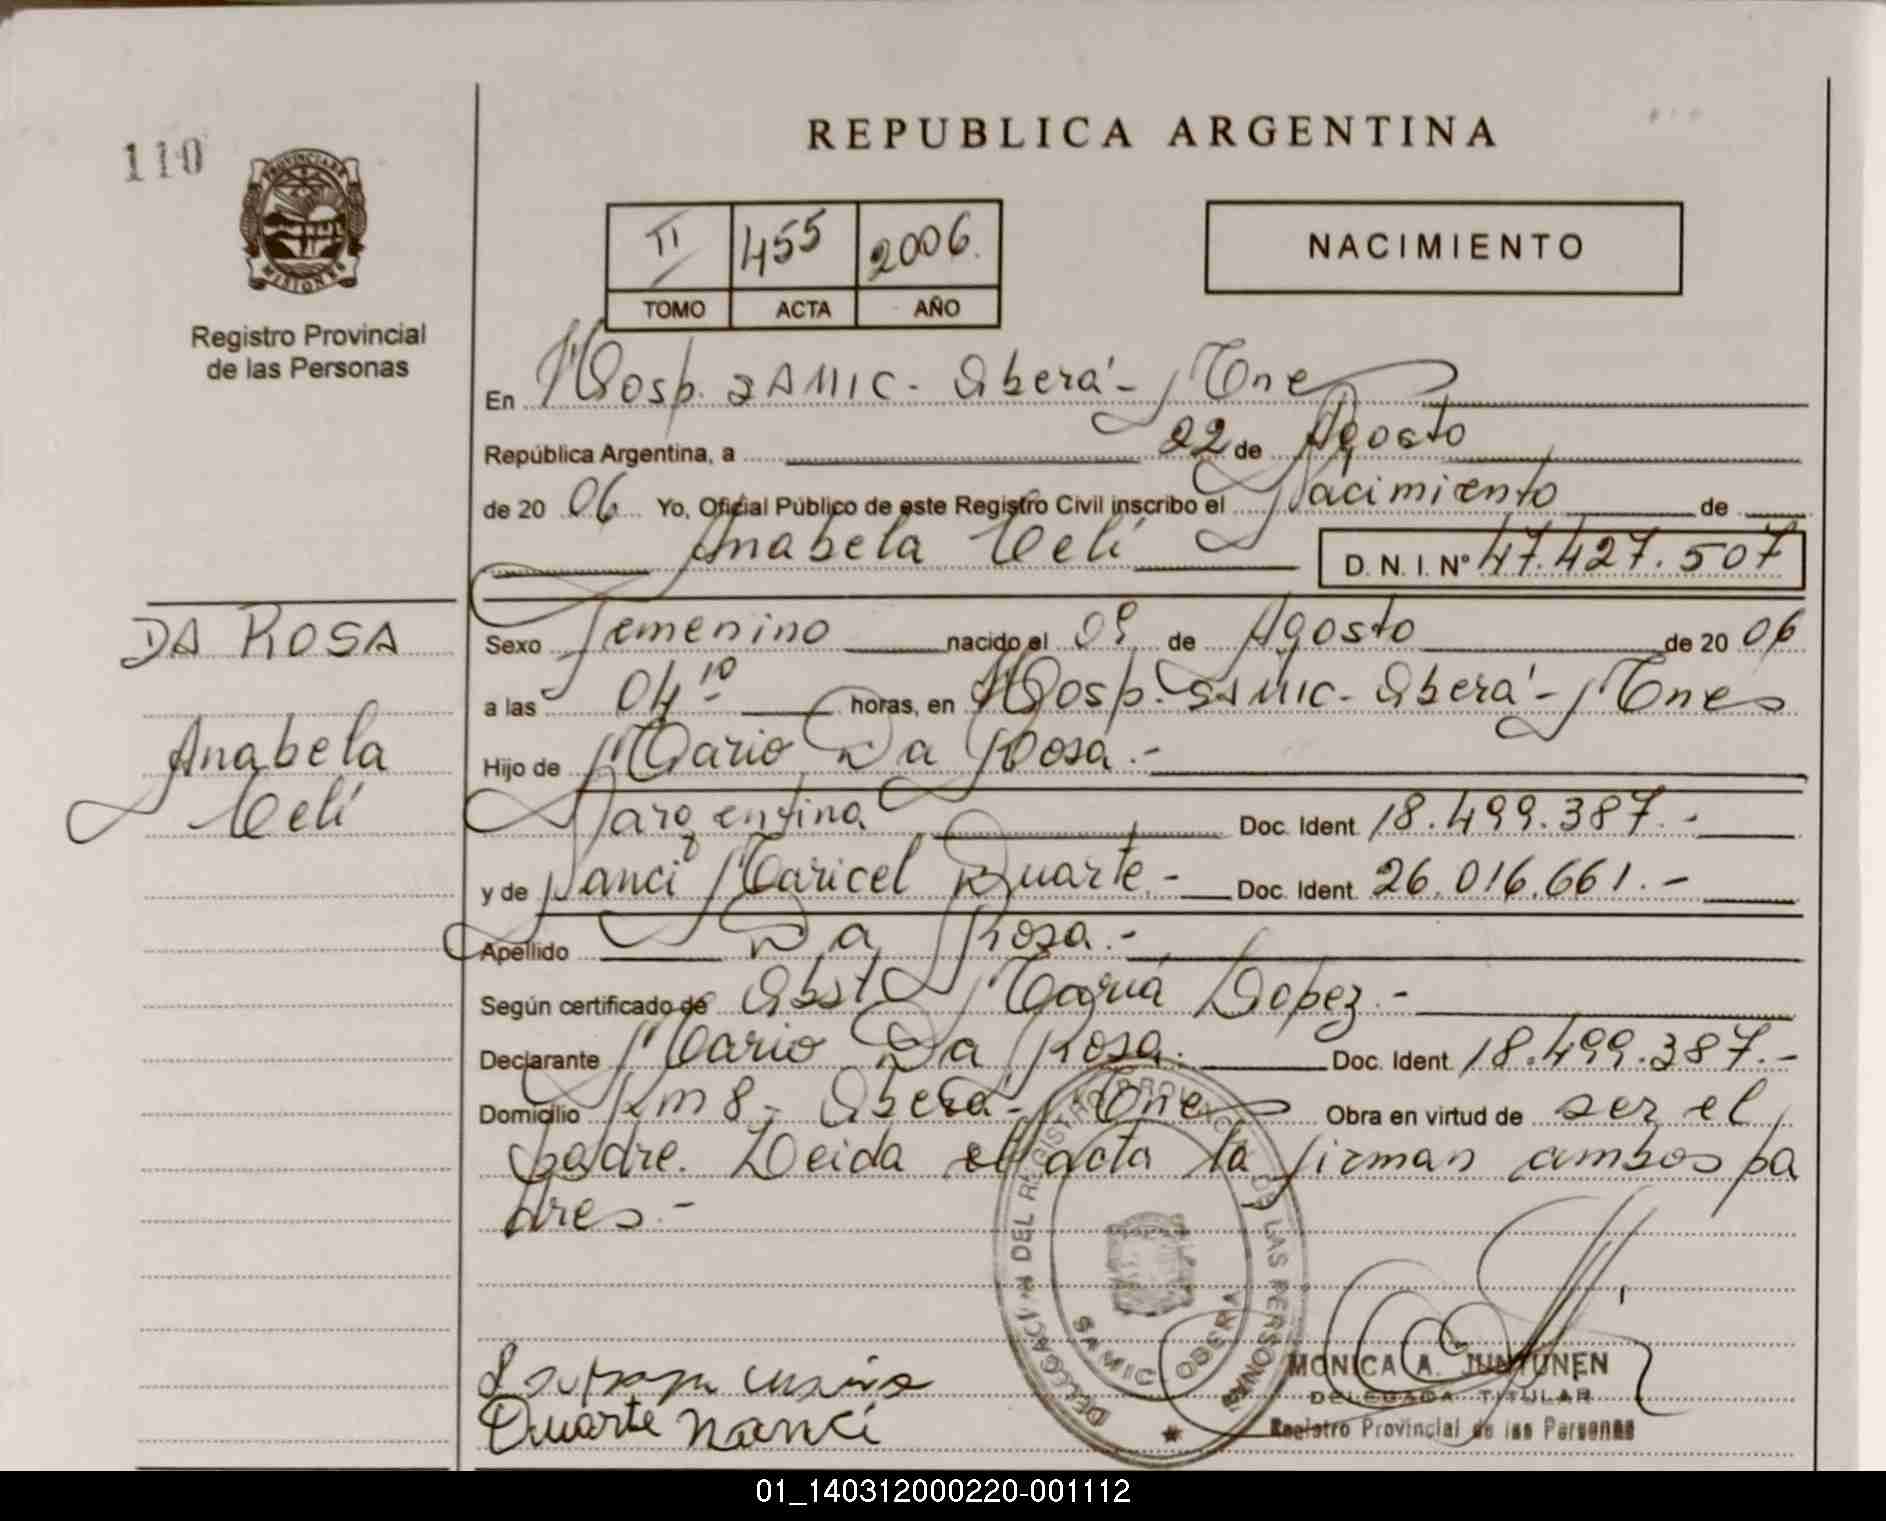 110
REPUBLICA ARGENTINA
PROVINCIA DE
MISIONES
Registro Provincial
de las Personas
II 455 2006.
TOMO ACTA AÑO
NACIMIENTO
En Hosp. SAMIC - Oberá - Mnes
República Argentina, a 22 de Agosto
de 20 06 Yo, Oficial Público de este Registro Civil inscribo el Nacimiento de
Anabela Celí
D. N. I. N° 47.427.507
DA ROSA
Anabela
Celí
Sexo Femenino nacido el 09 de Agosto de 20 06
a las 04 10 horas, en Hosp. SAMIC - Oberá - Mnes
Hijo de Mario Da Rosa.-
argentina Doc. Ident. 18.499.387.-
y de Nanci Maricel Duarte.- Doc. Ident. 26.016.661.-
Apellido Da Rosa.-
Según certificado de Obst María Lopez.-
Declarante Mario Da Rosa. Doc. Ident. 18.499.387.-
Domicilio Km 8 - Oberá - Mnes Obra en virtud de ser el
padre. Leida el acta la firman ambos pa
dres.-
DELEGACION DEL REGISTRO PROVINCIAL DE LAS PERSONAS
SAMIC OBERA
MONICA A. JUNTUNEN
DELEGADA TITULAR
Registro Provincial de las Personas
Duarte Nanci
01_140312000220-001112